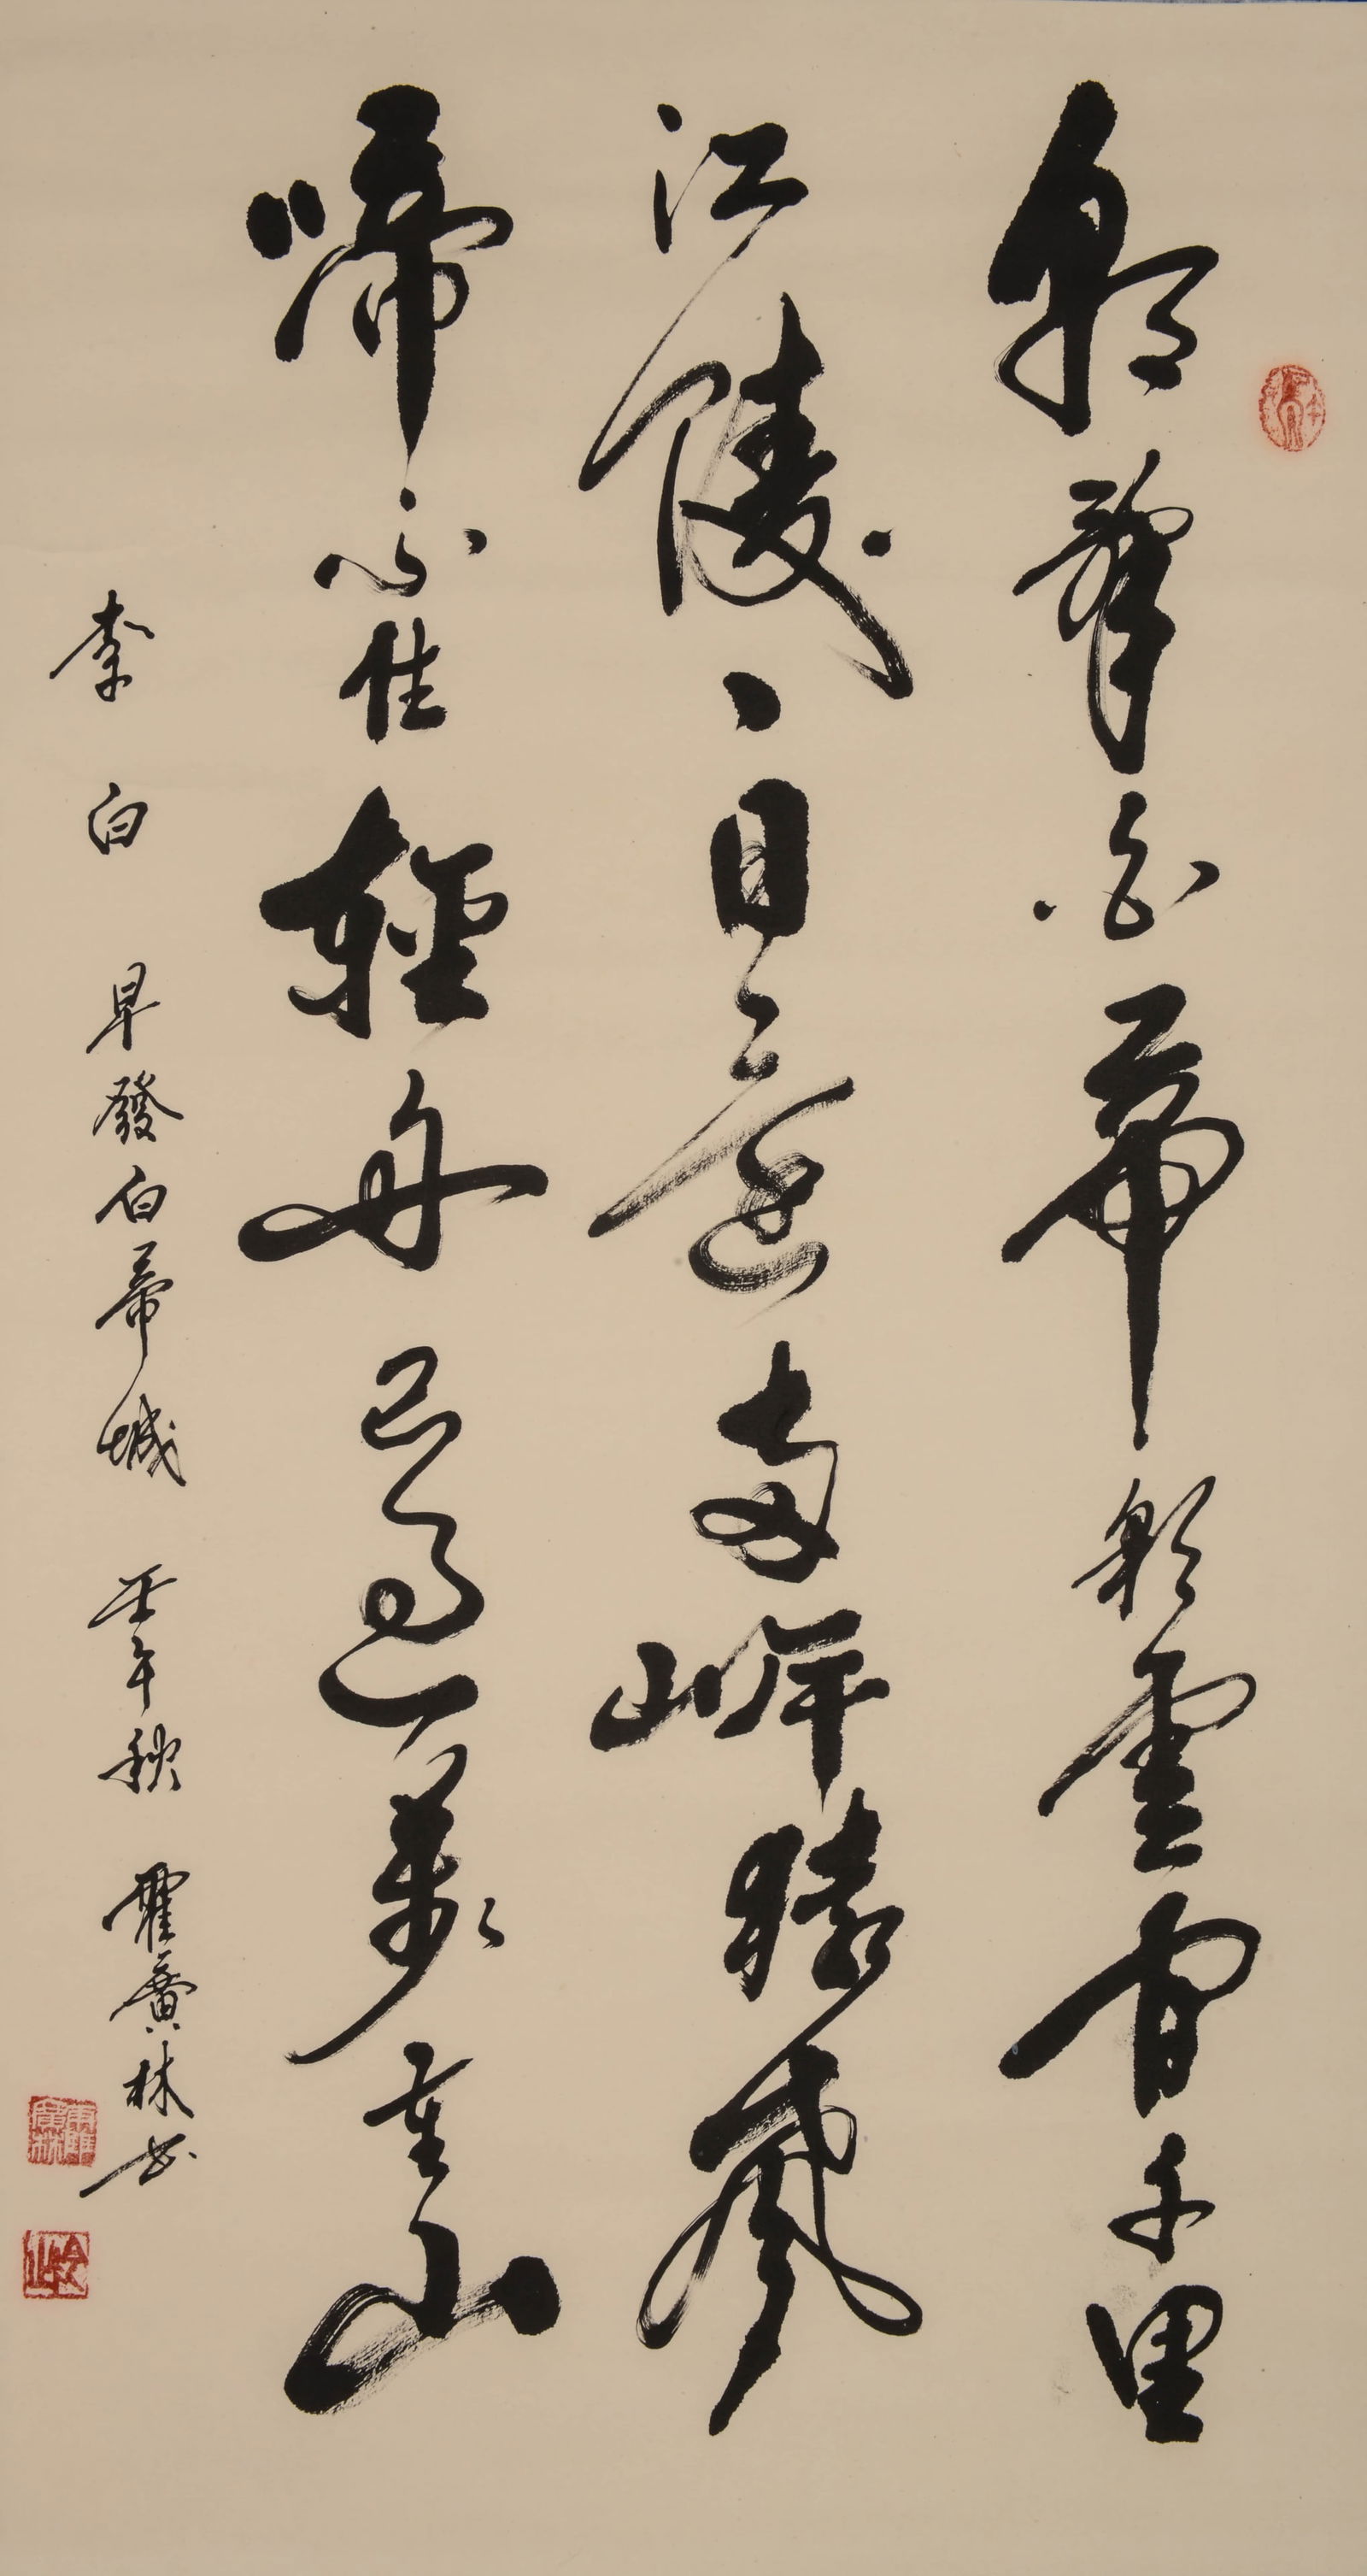 朝辭白帝彩雲間千里
江陵一日還兩岸猿聲
啼不住輕舟已過萬重山
李白 早發白帝城 壬午秋 霍廣林书